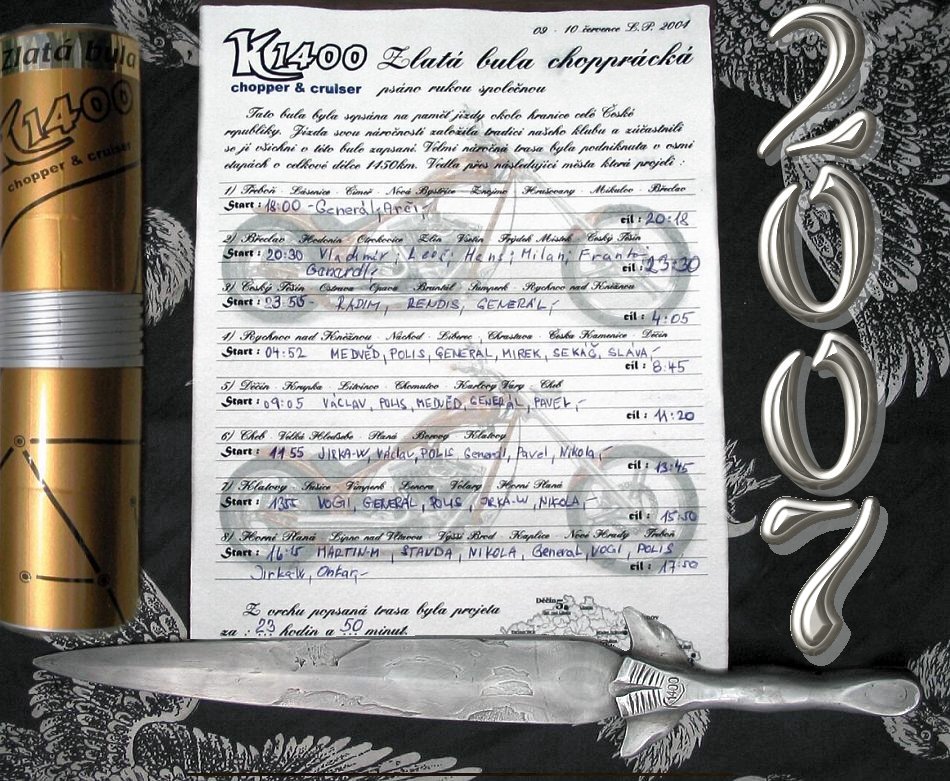 Zlatá bula
K1400
chopper & cruiser
09 - 10 července L.P. 2004
K1400 Zlatá bula choppрácká
chopper & cruiser psáno rukou společnou
Tato bula byla sepsána na paměť jízdy okolo hranice celé České
republiky. Jízda svou náročností založila tradici našeho klubu a zúčastnili
se jí všichni v této bule zapsaní. Velmi náročná trasa byla podniknuta v osmi
etapách o celkové délce 1450km. Vedla přes následující města která projeli :
1) Třeboň Lásenice Číměř Nová Bystřice Znojmo Hrušovany Mikulov Břeclav
Start : 18:00 - Generál, Arči,-
cíl : 20:18
2) Břeclav Hodonín Otrokovice Zlín Vsetín Frýdek Místek Český Těšín
Start : 20:30 Vladimír; Milan;
Generál;- cíl : 23:30
3) Český Těšín Ostrava Opava Bruntál Šumperk Rychnov nad Kněžnou
Start : 23:50 - RADIM, RENDIS, GENERÁL,-
cíl : 4:05
4) Rychnov nad Kněžnou Náchod Liberec Chrastava Česká Kamenice Děčín
Start : 04:52 MEDVĚD, POLIS, GENERÁL, MIREK, SEKÁČ, SLÁVA,-
cíl : 8:45
5) Děčín Krupka Litvínov Chomutov Karlovy Vary Cheb
Start : 09:05 VÁCLAV, POLIS, MEDVĚD, GENERÁL, PAVEL,-
cíl : 11:20
6) Cheb Velká Hleďsebe Planá Borovy Klatovy
Start : 11 55 JIRKA-W, Václav, POLIS, Generál, Pavel, Nikola,-
cíl : 13:45
7) Klatovy Sušice Vimperk Lenora Volary Horní Planá
Start : 1355 VOGI, GENERÁL, POLIS, JIRKA-W, NIKOLA,-
cíl : 15:50
8) Horní Planá Lipno nad Vltavou Vyšší Brod Kaplice Nové Hrady Třeboň
Start : 16:15 MARTIN-M, STANDA, NIKOLA, Generál, VOGI, POLIS
Jirka-W, Ontar,- cíl : 17:50
Z vrchu popsaná trasa byla projeta
za : 23 hodin a 50 minut.
Děčín
5.
K1400
2007